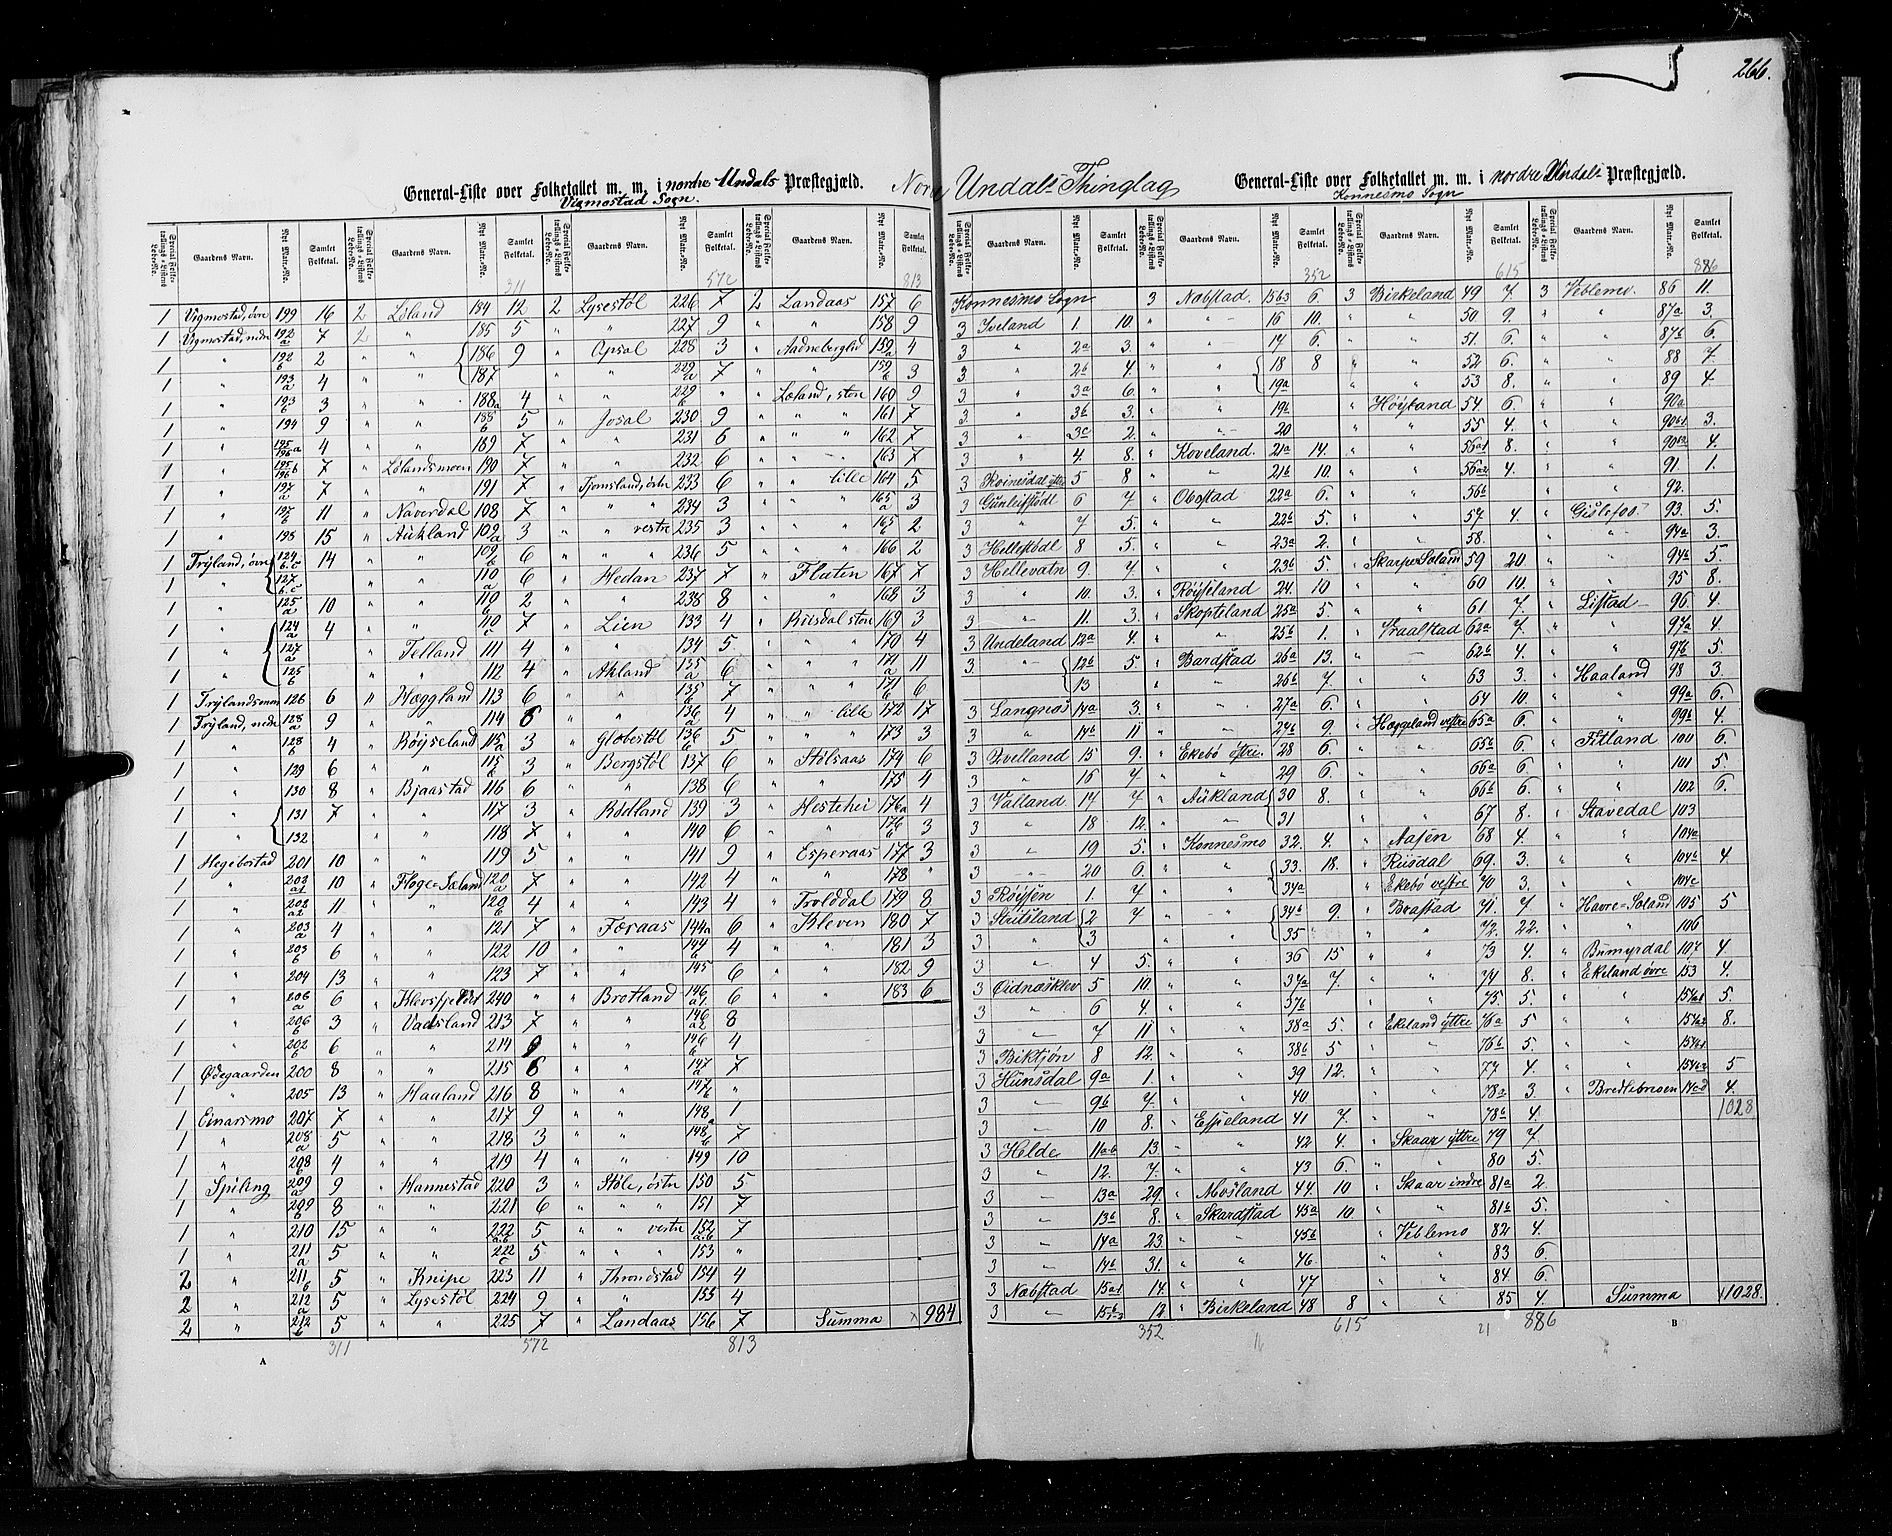 266.
General-Liste over Folketallet m. m. i nordre Undals Præstegjæld.
Vigmostad Sogn.
Undals Thinglag
General-Liste over Folketallet m. m. i nordre Undals Præstegjæld.
Konnesmo Sogn
Special Folketællings-Listens Løbe-No. Gaardens Navn. Nyt Matr.-No. Samlet Folketal. Special Folketællings-Listens Løbe-No. Gaardens Navn. Nyt Matr.-No. Samlet Folketal. Special Folketællings-Listens Løbe-No. Gaardens Navn. Nyt Matr.-No. Samlet Folketal. Special Folketællings-Listens Løbe-No. Gaardens Navn. Nyt Matr.-No. Samlet Folketal.
311 572 813
1 Vigmostad, øvre 199 16 2 Löland 184 12 2 Lysestöl 226 7 2 Landaas 157 6
1 Vigmostad, nedre 192a 7 2 " 185 5 " " 227 9 " " 158 9
1 " 192b 2 " " 186 9 " Opsal 228 3 " Aadneberglid 159a 4
1 " 193a 4 " " 187 " " 229a 7 " " 159b 3
1 " 193b 3 " " 188a 4 " " 229b " " Løland, store 160 9
1 " 194 9 " " 188b 5 " Josal 230 9 " " 161 7
1 " 195a 196a 4 " " 189 7 " " 231 6 " " " 162 7
1 " 195b 196b 7 " Lölandsmoen 190 7 " " 232 6 " " " 163 7
1 " 197a 7 " " 191 7 " Tjomsland, östre 233 6 " " lille 164 5
1 " 197b 11 " Naverdal 108 7 " " " 234 3 " " " 165a 3
1 " 198 15 " Aukland 109a 3 " " vestre 235 3 " " " 165b 2
1 Tryland, øvre 124 b.c 14 " " 109b 6 " " " 236 5 " " " 166 2
1 " 127 b.c " " 110a 6 " Hedan 237 7 " Flaten 167 7
1 " 125a 10 " " 110b 2 " " 238 8 " " 168 3
1 " 124a 4 " " 110c 7 " Lien 133 4 " Risdal store 169 3
1 " 127a " Felland 111 4 " " 134 5 " " " 170 4
1 " 125b " " 112 4 " Akland 135a 6 " " " 171a 11
1 Trylandsmoen 126 6 " Hæggland 113 6 " " 135b 7 " " " 171b 6
1 Tryland, nedre 128a 9 " " 114 6 " " 136a 4 " " lille 172 17
1 " 128b 4 " Röyseland 115a 3 " Glöbestöl 136b 5 " " " 173 3
1 " 129 6 " " 115b 3 " Bergstöl 137 6 " Stölsaas 174 6
1 " 130 8 " Bjaastad 116 6 " " 138 6 " " 175 4
1 " 131 7 " " 117 3 " Rödland 139 3 " Hestehei 176a 4
1 " 132 " " 118 7 " " 140 6 " " 176b 3
1 Hegebostad 201 10 " " 119 5 " " 141 9 " Esperaas 177 3
1 " 202 a1 10 " Floge=Sæland 120a 7 " " 142 4 " " 178 "
1 " 202 a2 11 " " 120b 4 " " 143 4 " Trolddal 179 8
1 " 203a 4 " " 121 7 " Færaas 144a 6 " Kleven 180 7
1 " 203b 6 " " 122 10 " " 144b 4 " " 181 3
1 " 204 13 " " 123 7 " " 145 6 " " 182 9
1 " 206a 6 " Klevsfjeldet 240 " " Brotland 146 a1 6 " " 183 6
1 " 206b 3 " Vadsland 213 7 " " 146 a2 8
1 " 202b 6 " " 214 9 " " 146b 4
1 Ødegaarden 200 8 " " 215 6 " " 147a 7
1 " 205 13 " Haaland 216 8 " " 147b "
1 Einarsmo 207 7 " " 217 9 " " 148a 1
1 " 208a 5 " " 218 3 " " 148b 7
1 " 208b 4 " " 219 4 " " 149 10
1 Spiling 209a 9 " Hannestad 220 3 " Støle, østre 150 5
1 " 209b 8 " " 221 6 " " " 151 7
1 " 210 15 " " 222 a.b 5 " " vestre 152 a.b 7
1 " 211a 5 " " 222c 5 " " " 153 "
2 " 211b 5 " Knipe 223 11 " Throndstad 154 4
2 " 212a 5 " Lysestöl 224 9 " " 155 4
2 " 212b 5 " " 225 7 " Landaas 156 7 Summa 984
311 572 813
A
Special Folketællings-Listens Løbe-No. Gaardens Navn. Nyt Matr.-No. Samlet Folketal. Special Folketællings-Listens Løbe-No. Gaardens Navn. Nyt Matr.-No. Samlet Folketal. Special Folketællings-Listens Løbe-No. Gaardens Navn. Nyt Matr.-No. Samlet Folketal. Special Folketællings-Listens Løbe-No. Gaardens Navn. Nyt Matr.-No. Samlet Folketal.
352 615 886
Konnesmo Sogn 3 Nabstad. 15b3 6. 3 Birkeland 49 7. 3 Veblemo. 86 11.
3 Iveland 1. 10. " " 16 10. " " 50 9. " " 87a 3.
3 " 2a 3. " " 17 6. " " 51. 6. " " 87b 6.
3 " 2b 4. " " 18 8 " " 52 6. " " 88 7.
3 " 3a 6. " " 19a " " 53 8. " " 89 4.
3 " 3b 3. " " 19b " Höyland 54. 6. " " 90a
3 " 3c 2. " " 20 " " 55 4. " " 90b1 3.
3 " 4. 8. " Koveland. 21a 14. " " 56a1 8. " " 90b2 4.
3 Koinesdal ytre 5 8 " " 21b 10. " " 56a2 4. " " 91. 1.
3 Gunleifstödl 6 7 " Obostad 22a 6. " " 56b " " 92.
3 " 7 5. " " 22b 5. " " 57 4. " Gislefos 93. 5.
3 Hellestödl 8 5. " " 23a 2. " " 58. " " 94a 3.
3 Hellevatn 9. 7. " " 23b 5 " Skarpe=Soland 59 20. " " 94b 5.
3 " 10. 3. " Röyseland 24. 10 " " 60 10. " " 95 8.
3 " 11. 3. " Skofteland 25a 5. " " 61 7. " Listad 96 4.
3 Undeland 12a 4. " " 25b 1. " Vraalstad 62a 7. " " 97a 4.
3 " 12b 5. " Bardstad 26a 13. " " 62b 4. " " 97b 5.
13 " " 26b 7. " " 63 3. " Haaland 98 3.
3 Langnes 14a 3. " " 27a 6. " " 64 10. " " 99a 6.
3 " 14b 11 " " 27b 9. " Hæggeland vestre 65a 6. " " 99b 4.
3 Qvelland 15 9. " Ekebö östre. 28 6. " " 65b 6. " Fitland 100 6.
3 " 16 7. " " 29 6. " " 66a 6 " " 101 5.
3 Valland 17 7 " Aukland 30 8. " " 66b 6. " " 102 6.
3 " 18 12. " " 31 " " 67 8. " Stavedal 103
3 " 19 5 " Konnesmo 32. 4. " Aasen 68 4. " " 104a
3 " 20 6. " " 33. 18. " Riisdal 69. 3. " " 104b 4
3 Röysen 1. 7 " " 34a " Ekebö vestre 70 3. " " 104c
3 Stutsland 2 7 " " 34b 9. " Boastad 71. 7. " Havre=Soland 105 5
3 " 3 " " 35 " " 72. 22. " " 106
3 " 4 5. " " 36 15 " " 73 4. " Bumyrdal 107 4
3 Øidnæsklev 5 10. " " 37a 7. " " 74 8. " Ekeland övre 153 4.
3 " 6 4. " " 37b " " 75. 5. " " 154a1 5.
3 " 7 11 " " 38a 5. " Ekeland yttre 76a 5 " " 154a2 8.
3 Biktjön 8 12. " " 38b 5 " " 76b 5. " " 154b1
3 Hunsdal 9a 1. " " 39 12. " " 77 4. " " 154b2 5
3 " 9b 7. " " 40 " " 78a 3. " Bredlebroen 4.
3 " 10 8. " Efjeland 41 7. " " 78b 4. 1028
3 Helde 11a-b 13. " " 42 4. " Skaar yttre 79 7
3 " 12. 7. " " 43 6. " " 80 5.
3 " 13a 29. " Mosland 44. 10 " Skaar indre 81a 2.
3 " 13b 8. " Skardstad 45a 10. " " 81b 5.
3 " 14a 23 " " 45b " Veblemo 82 4.
3 " 14b 31. " " 46. " " 83 6.
3 Nabstad 15a1 14. " " 47 " " 84. 6.
3 " 15b1-2 12 " Birkeland 48 8 " " 85 4. Summa 1028.
352 16 615 21 886 B